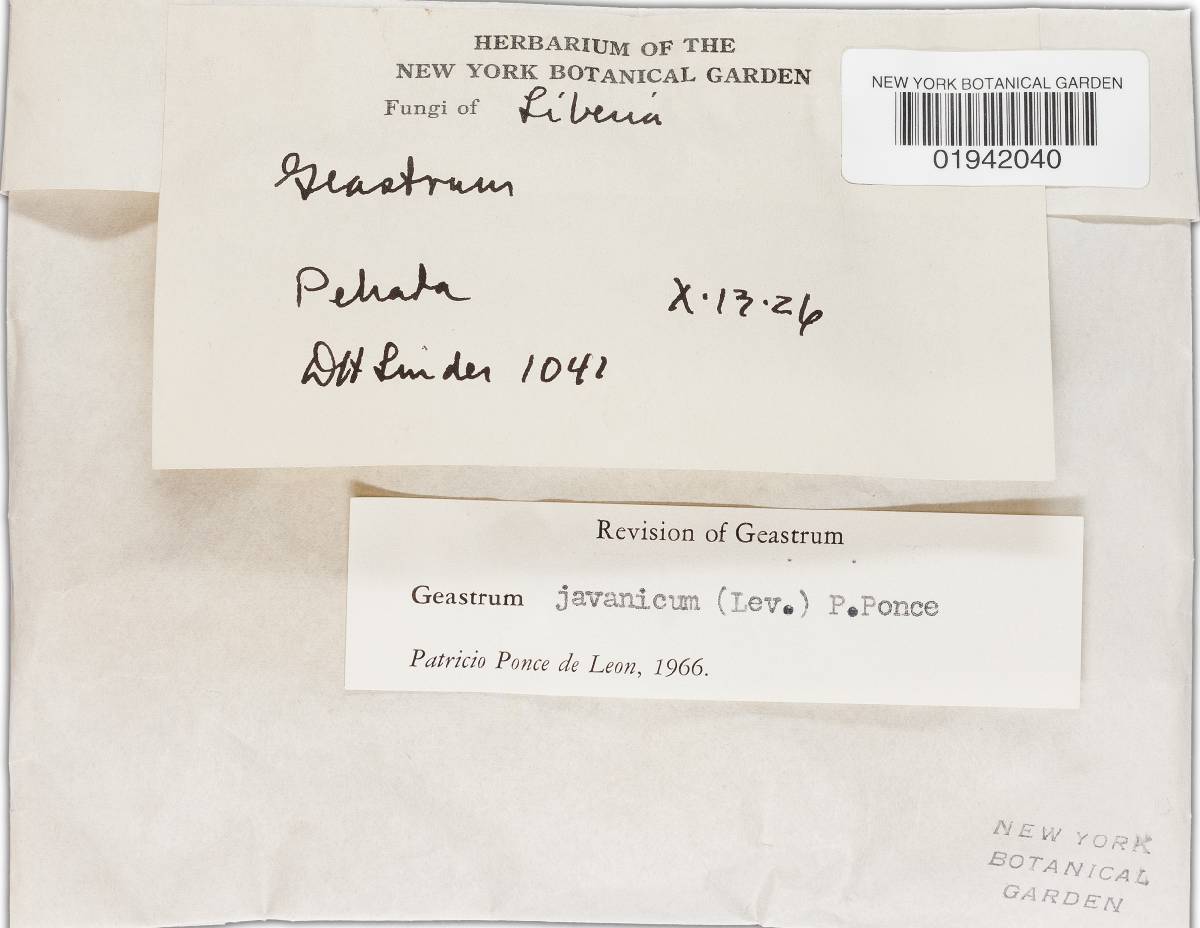 HERBARIUM OF THE
NEW YORK BOTANICAL GARDEN
Fungi of Liberia
NEW YORK BOTANICAL GARDEN
01942040
Geastrum
X·13·26
DH Linder 1041
Revision of Geastrum
Geastrum javanicum (Lev.) P.Ponce
Patricio Ponce de Leon, 1966.
NEW YORK
BOTANICAL
GARDEN